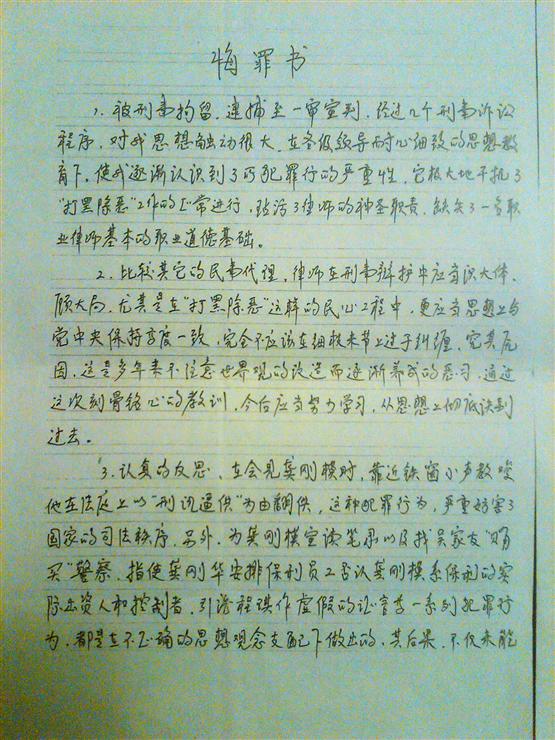 悔罪书
1、被刑事拘留、逮捕至一审宣判，经过几个刑事诉讼
程序，对我思想触动很大。在各级领导耐心细致的思想教
育下，使我逐渐认识到了所犯罪行的严重性，它极大地干扰了
“打黑除恶”工作的正常进行，玷污了律师的神圣职责，缺失了一名职
业律师基本的职业道德基础。
2、比较其它的民事代理，律师在刑事辩护中应当识大体、
顾大局，尤其是在“打黑除恶”这样的民心工程中，更应当思想上与
党中央保持高度一致，完全不应该在细枝末节上过于纠缠。究其原
因，这是多年来不注意世界观的改造而逐渐养成的恶习，通过
这次刻骨铭心的教训，今后应当努力学习，从思想上彻底认识到
过去。
3、认真的反思，在会见龚刚模时，靠近铁窗小声教唆
他在法庭上以“刑讯逼供”为由翻供，这种犯罪行为，严重妨害了
国家的司法秩序。另外，为龚刚模宣读笔录以及找吴家友“贿
买”警察，指使龚刚华安排保利员工否认龚刚模系保利的实
际出资人和控制者，引诱程琪作虚假的证言等一系列犯罪行
为，都是在不正确的思想观念支配下做出的，其后果，不仅未能